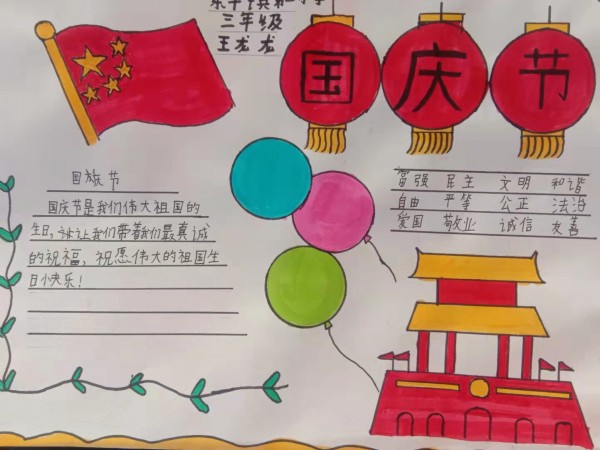 三年级
王龙龙
国庆节
国旗节
国庆节是我们伟大祖国的
生日,让我们带着我们最真诚
的祝福,祝愿伟大的祖国生
日小快乐!
富强 民主 文明 和谐
自由 平等 公正 法治
爱国 敬业 诚信 友善